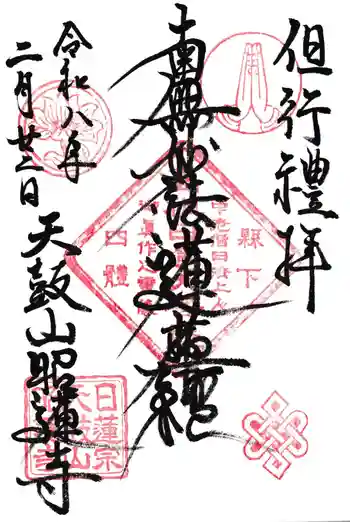 但行禮拝
南無妙法蓮華経
令和八年
二月廿二日
天鼓山昭蓮寺
縣下
四體
日蓮宗
天鼓山